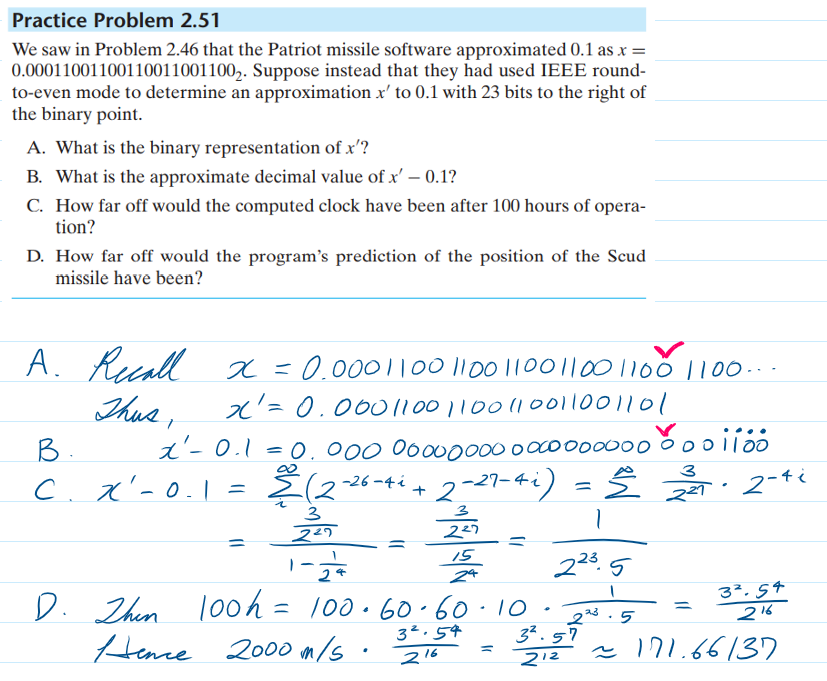 Practice Problem 2.51
We saw in Problem 2.46 that the Patriot missile software approximated 0.1 as x =
0.00011001100110011001100₂. Suppose instead that they had used IEEE round-
to-even mode to determine an approximation x′ to 0.1 with 23 bits to the right of
the binary point.
A. What is the binary representation of x′?
B. What is the approximate decimal value of x′ − 0.1?
C. How far off would the computed clock have been after 100 hours of opera-
tion?
D. How far off would the program's prediction of the position of the Scud
missile have been?
A. Recall x = 0.00011001100110011001100 1100...
Thus, x' = 0.00011001100110011001101
B. x' - 0.1 = 0.00000000000000000000000001100
C. x' - 0.1 = ∑_i^∞ (2^{-26-4i} + 2^{-27-4i}) = ∑^∞ 3/2^{27} · 2^{-4i}
= (3/2^{27})/(1 - 1/2^4) = (3/2^{27})/(15/2^4) = 1/(2^{23}·5)
D. Then 100h = 100 · 60 · 60 · 10 · 1/(2^{23}·5) = 3^2·5^4/2^{16}
Hence 2000 m/s · 3^2·5^4/2^{16} = 3^2·5^7/2^{12} ≈ 171.66137